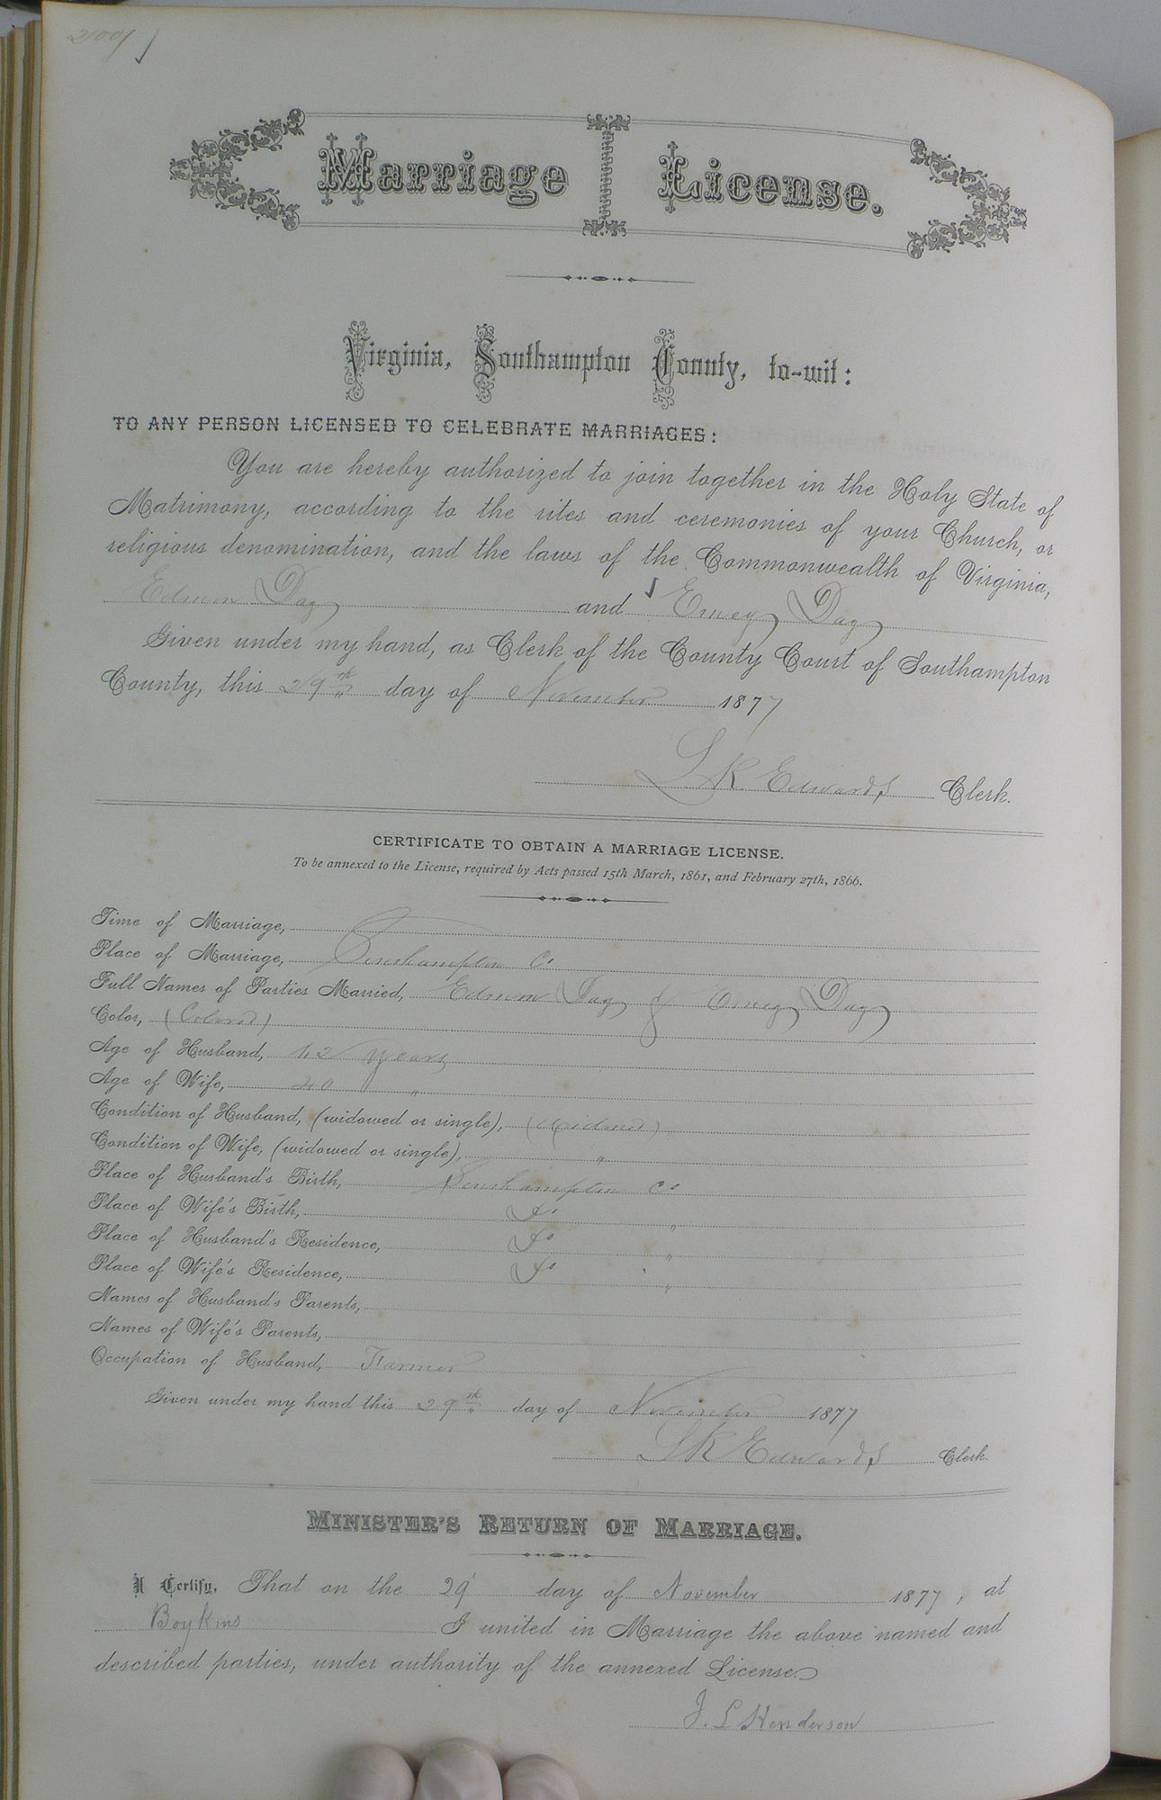 Marriage License.
Virginia, Southampton County, to-wit:
TO ANY PERSON LICENSED TO CELEBRATE MARRIAGES:
You are hereby authorized to join together in the Holy State of
Matrimony, according to the rites and ceremonies of your Church, or
religious denomination, and the laws of the Commonwealth of Virginia,
Edmon Day and Day
Given under my hand, as Clerk of the County Court of Southampton
County, this 29th day of November 1877
L R Edwards Clerk.
CERTIFICATE TO OBTAIN A MARRIAGE LICENSE.
To be annexed to the License, required by Acts passed 15th March, 1861, and February 27th, 1866.
Time of Marriage,
Place of Marriage, Southampton Co
Full Names of Parties Married, Edmon Day & Day
Color, (Colored)
Age of Husband, 42 years
Age of Wife, 40 "
Condition of Husband, (widowed or single), (Widowed)
Condition of Wife, (widowed or single), "
Place of Husband's Birth, Southampton Co
Place of Wife's Birth, Do "
Place of Husband's Residence, Do "
Place of Wife's Residence, Do "
Names of Husband's Parents,
Names of Wife's Parents,
Occupation of Husband, Farmer
Given under my hand this 29th day of November 1877
L R Edwards Clerk.
MINISTER'S RETURN OF MARRIAGE.
I Certify, That on the 29 day of November 1877, at
Boykins I united in Marriage the above named and
described parties, under authority of the annexed License.
J. L Henderson